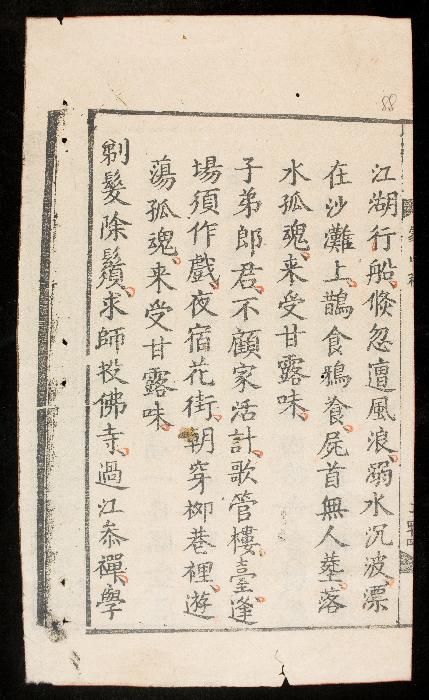 江湖行船、倏忽遭風浪、溺水沉波、漂
在沙灘上、鵲食鴉飡、屍首無人𦵏、落
水孤魂、来受甘露味、
子弟郎君、不顧家活計、歌管樓臺、逢
場須作戲、夜宿花街、朝穿柳巷裡、遊
蕩孤魂、来受甘露味、
剃髮除鬚、求師投佛寺、過江叅禪、學
88